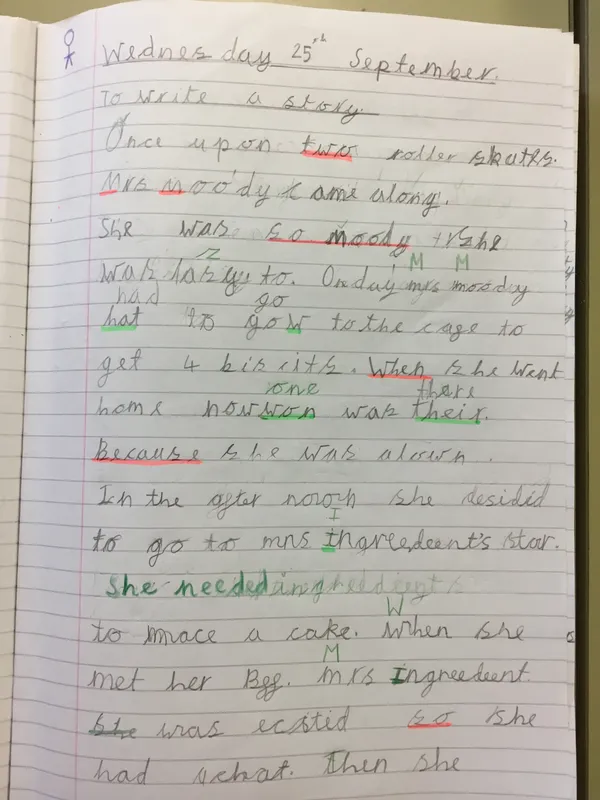 Wednesday 25th September.
To write a story.
Once upon two roller skates.
Mrs moody came along.
She was so moody she
z M M
was lazy to. On day mrs moody
had go
hat to gow to the cage to
get 4 biscits. When she went
one there
home nowwon was their.
Because she was alown.
In the after noon she desided
I
to go to mrs Ingreedeent's stor.
She needed ingreedeent
W
to mace a cake. When she
M
met her Bff. mrs Ingreedeent.
she was ecstid so she
had a chat. Then she